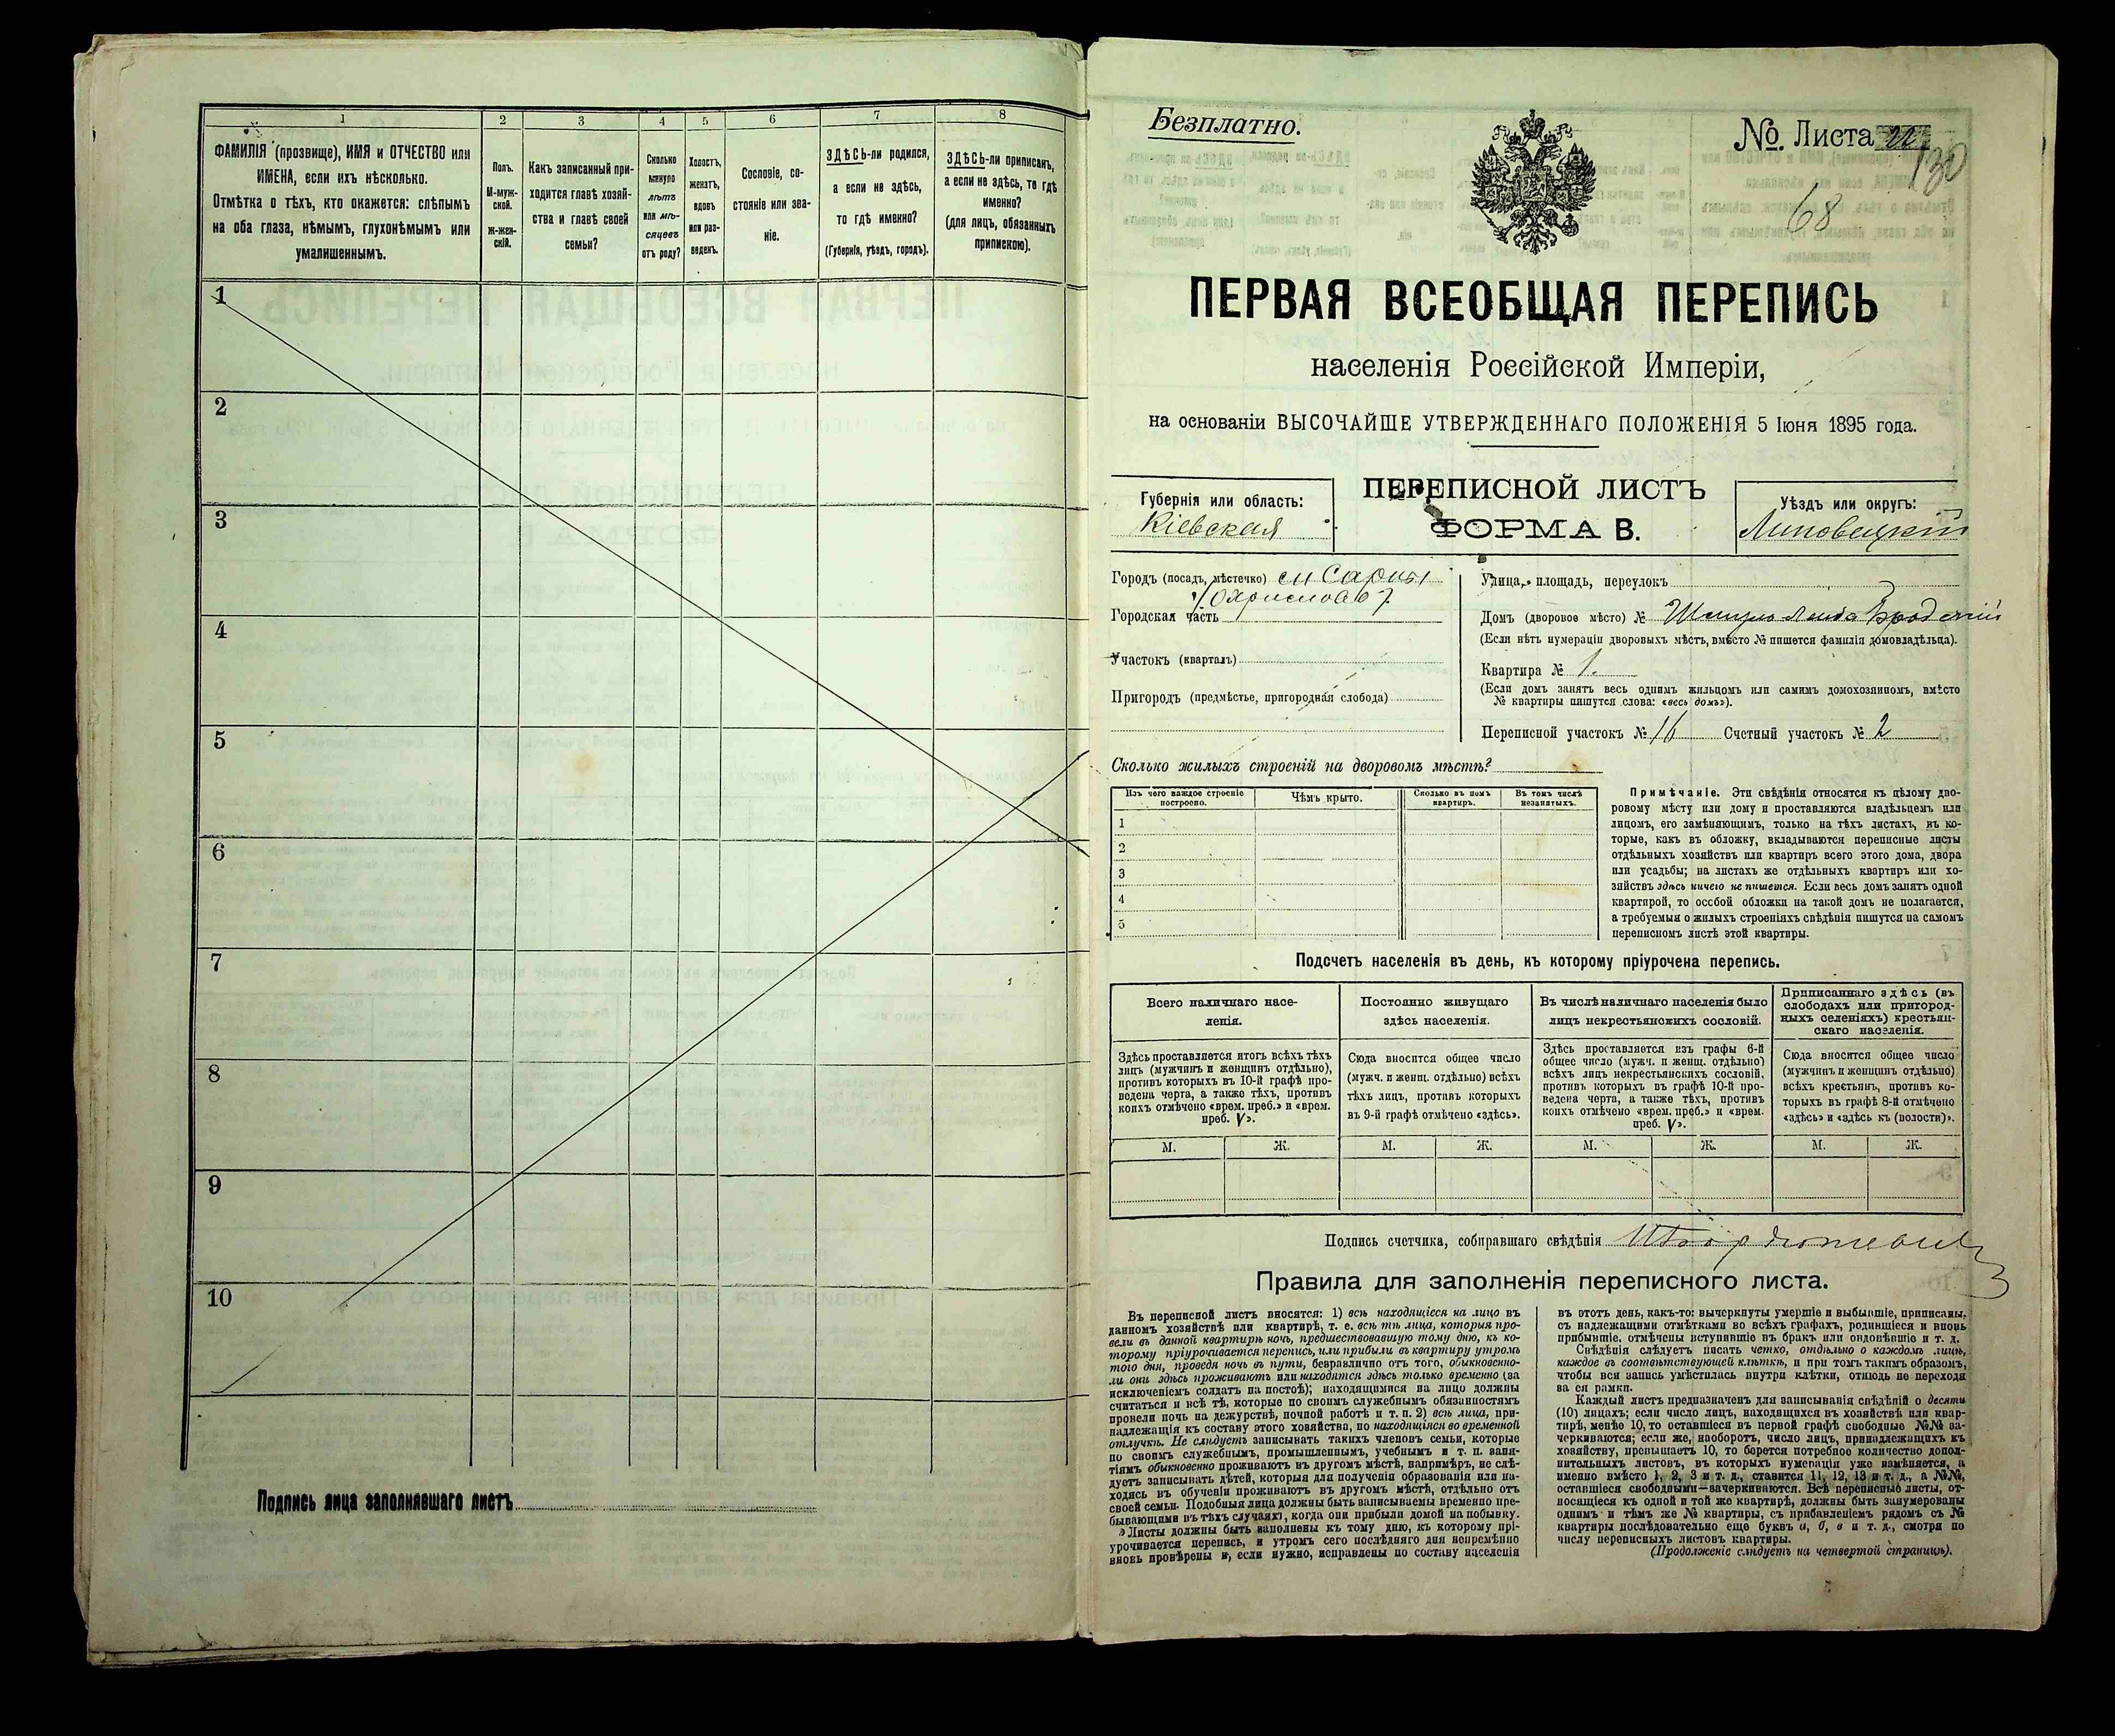 1
2
3
4
5
6
7
8
ФАМИЛІЯ (прозвище), ИМЯ и ОТЧЕСТВО или
ИМЕНА, если ихъ нѣсколько.
Отмѣтка о тѣхъ, кто окажется: слѣпымъ
на оба глаза, нѣмымъ, глухонѣмымъ или
умалишеннымъ.
Полъ.
М-муж-
ской.
Ж-жен-
скій.
Какъ записанный при-
ходится главѣ хозяй-
ства и главѣ своей
семьи?
Сколько
минуло
лѣтъ
или мѣ-
сяцевъ
отъ роду?
Холостъ,
женатъ,
вдовъ
или раз-
веденъ.
Сословіе, со-
стояніе или зва-
ніе.
ЗДѢСЬ-ли родился,
а если не здѣсь,
то гдѣ именно?
(Губернія, уѣздъ, городъ).
ЗДѢСЬ-ли приписанъ,
а если не здѣсь, то гдѣ
именно?
(для лицъ, обязанныхъ
припискою).
1
2
3
4
5
6
7
8
9
10
Подпись лица заполнявшаго листъ
Безплатно.
№ Листа 22
130
68
ПЕРВАЯ ВСЕОБЩАЯ ПЕРЕПИСЬ
населенія Россійской Имперіи,
на основаніи ВЫСОЧАЙШЕ УТВЕРЖДЕННАГО ПОЛОЖЕНІЯ 5 Іюня 1895 года.
Губернія или область:
Кіевская
ПЕРЕПИСНОЙ ЛИСТЪ
ФОРМА В.
Уѣздъ или округъ:
Липовецкій
Городъ (посадъ, мѣстечко)
Городская часть
Участокъ (кварталъ)
Пригородъ (предмѣстье, пригородная слобода)
Улица, площадь, переулокъ
Домъ (дворовое мѣсто) № Бродскій
(Если нѣтъ нумераціи дворовыхъ мѣстъ, вмѣсто № пишется фамилія домовладѣльца).
Квартира № 1.
(Если домъ занятъ весь однимъ жильцомъ или самимъ домохозяиномъ, вмѣсто
№ квартиры пишутся слова: «весь домъ»).
Переписной участокъ № 16 Счетный участокъ № 2
Сколько жилыхъ строеній на дворовомъ мѣстѣ?
Изъ чего каждое строеніе
построено.
Чѣмъ крыто.
Сколько въ немъ
квартиръ.
Въ томъ числѣ
незанятыхъ.
1
2
3
4
5
Примѣчаніе. Эти свѣдѣнія относятся къ цѣлому дво-
ровому мѣсту или дому и проставляются владѣльцемъ или
лицомъ, его замѣняющимъ, только на тѣхъ листахъ, въ ко-
торые, какъ въ обложку, вкладываются переписные листы
отдѣльныхъ хозяйствъ или квартиръ всего этого дома, двора
или усадьбы; на листахъ же отдѣльныхъ квартиръ или хо-
зяйствъ здѣсь ничего не пишется. Если весь домъ занятъ одной
квартирой, то особой обложки на такой домъ не полагается,
а требуемыя о жилыхъ строеніяхъ свѣдѣнія пишутся на самомъ
переписномъ листѣ этой квартиры.
Подсчетъ населенія въ день, къ которому пріурочена перепись.
Всего наличнаго насе-
ленія.
Постоянно живущаго
здѣсь населенія.
Въ числѣ наличнаго населенія было
лицъ некрестьянскихъ сословій.
Приписаннаго здѣсь (въ
слободахъ или пригород-
ныхъ селеніяхъ) крестьян-
скаго населенія.
Здѣсь проставляется итогъ всѣхъ тѣхъ
лицъ (мужчинъ и женщинъ отдѣльно),
противъ которыхъ въ 10-й графѣ про-
ведена черта, а также тѣхъ, противъ
коихъ отмѣчено «врем. преб.» и «врем.
преб. V».
Сюда вносится общее число
(мужч. и женщ. отдѣльно) всѣхъ
тѣхъ лицъ, противъ которыхъ
въ 9-й графѣ отмѣчено «здѣсь».
Здѣсь проставляется изъ графы 6-й
общее число (мужч. и женщ. отдѣльно)
всѣхъ лицъ некрестьянскихъ сословій,
противъ которыхъ въ графѣ 10-й про-
ведена черта, а также тѣхъ, противъ
коихъ отмѣчено «врем. преб.» и «врем.
преб. V».
Сюда вносится общее число
(мужчинъ и женщинъ отдѣльно)
всѣхъ крестьянъ, противъ ко-
торыхъ въ графѣ 8-й отмѣчено
«здѣсь» и «здѣсь къ (волости)».
М. Ж. М. Ж. М. Ж. М. Ж.
Подпись счетчика, собиравшаго свѣдѣнія
Правила для заполненія переписного листа.
Въ переписной листъ вносятся: 1) всѣ находящіеся на лицо въ
данномъ хозяйствѣ или квартирѣ, т. е. всѣ тѣ лица, которыя про-
вели въ данной квартирѣ ночь, предшествовавшую тому дню, къ ко-
торому пріурочивается перепись, или прибыли въ квартиру утромъ
того дня, проведя ночь въ пути, безразлично отъ того, обыкновенно-
ли они здѣсь проживаютъ или находятся здѣсь только временно (за
исключеніемъ солдатъ на постоѣ); находящимися на лицо должны
считаться и всѣ тѣ, которые по своимъ служебнымъ обязанностямъ
провели ночь на дежурствѣ, ночной работѣ и т. п. 2) всѣ лица, при-
надлежащія къ составу этого хозяйства, но находящіяся во временной
отлучкѣ. Не слѣдуетъ записывать такихъ членовъ семьи, которые
по своимъ служебнымъ, промышленнымъ, учебнымъ и т. п. заня-
тіямъ обыкновенно проживаютъ въ другомъ мѣстѣ, напримѣръ, не слѣ-
дуетъ записывать дѣтей, которыя для полученія образованія или на-
ходясь въ обученіи проживаютъ въ другомъ мѣстѣ, отдѣльно отъ
своей семьи. Подобныя лица должны быть записываемы временно пре-
бывающими въ тѣхъ случаяхъ, когда они прибыли домой на побывку.
Листы должны быть наполнены къ тому дню, къ которому прі-
урочивается перепись, и утромъ сего послѣдняго дня непремѣнно
вновь провѣрены и, если нужно, исправлены по составу населенія
въ этотъ день, какъ-то: вычеркнуты умершіе и выбывшіе, приписаны,
съ надлежащими отмѣтками во всѣхъ графахъ, родившіеся и вновь
прибывшіе, отмѣчены вступившіе въ бракъ или овдовѣвшіе и т. д.
Свѣдѣнія слѣдуетъ писать четко, отдѣльно о каждомъ лицѣ,
каждое въ соотвѣтствующей клѣткѣ, и при томъ такимъ образомъ,
чтобы вся запись умѣстилась внутри клѣтки, отнюдь не переходя
за ея рамки.
Каждый листъ предназначенъ для записыванія свѣдѣній о десяти
(10) лицахъ; если число лицъ, находящихся въ хозяйствѣ или квар-
тирѣ, менѣе 10, то оставшіеся въ первой графѣ свободные №№ за-
черкиваются; если же, наоборотъ, число лицъ, принадлежащихъ къ
хозяйству, превышаетъ 10, то берется потребное количество допол-
нительныхъ листовъ, въ которыхъ нумерація уже измѣняется, а
именно вмѣсто 1, 2, 3 и т. д., ставится 11, 12, 13 и т. д., а №№,
оставшіеся свободными—зачеркиваются. Всѣ переписные листы, от-
носящіеся къ одной и той же квартирѣ, должны быть занумерованы
однимъ и тѣмъ же № квартиры, съ прибавленіемъ рядомъ съ №
квартиры послѣдовательно еще буквъ а, б, в и т. д., смотря по
числу переписныхъ листовъ квартиры.
(Продолженіе слѣдуетъ на четвертой страницѣ).